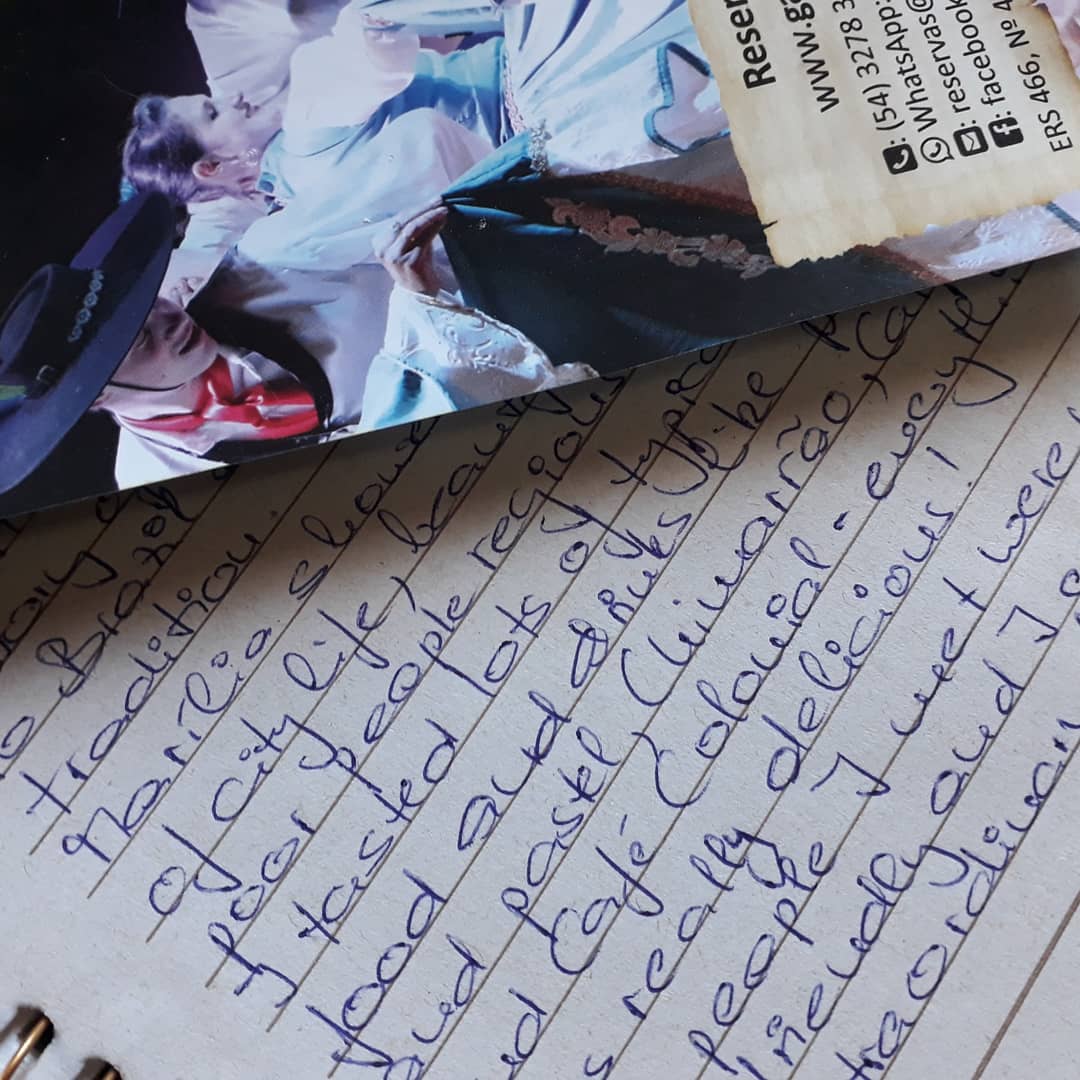 Reser
www.ga
: (54) 3278 3
WhatsApp:
: reservas@
: facebook
ERS 466, Nº 4
Brazil
tradition
Marília showe
of city life,
poor people regions
I tasted lots of typica
food and drinks like
and pastel, Chimarrão, Ca
Café Colonial - every
really delicious! I
people I met were
friendly and I
traordinary